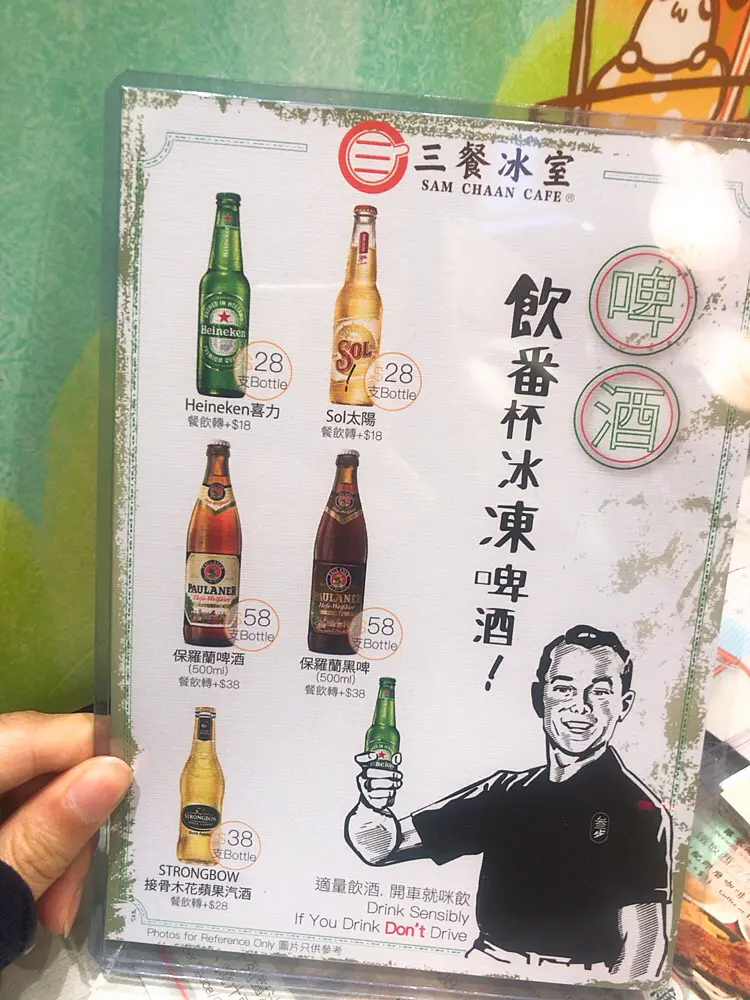 三餐冰室
SAM CHAAN CAFE®
啤酒
飲番杯冰凍啤酒！
Heineken
$28
支Bottle
Heineken喜力
餐飲轉+$18
SOL
$28
支Bottle
Sol太陽
餐飲轉+$18
PAULANER
$58
支Bottle
保羅蘭啤酒
(500ml)
餐飲轉+$38
PAULANER
$58
支Bottle
保羅蘭黑啤
(500ml)
餐飲轉+$38
STRONGBOW
$38
支Bottle
STRONGBOW
接骨木花蘋果汽酒
餐飲轉+$28
適量飲酒. 開車就咪飲
Drink Sensibly
If You Drink Don't Drive
Photos for Reference Only 圖片只供參考